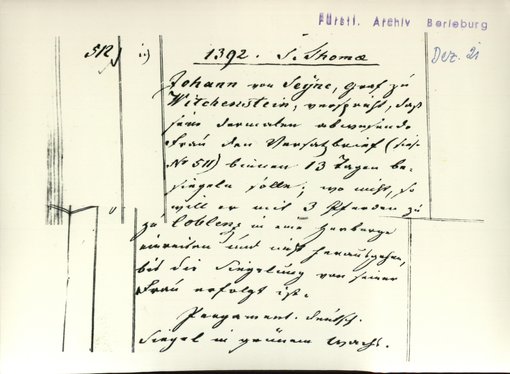 Fürstl. Archiv Berleburg
Dez. 21
512) 1392. S. Thomæ
Johann von Seyne, Graf zu
Witchenstein, verspricht, daß
seine dermalen abwesende
Frau den Versatzbrief (siehe
No 511) binnen 13 Tagen be-
siegeln solle; wo nicht, so
will er mit 3 Pferden zu
zu Coblenz in eine Herberge
einreiten und nicht herausgehen,
bis die Siegelung von seiner
Frau erfolgt ist.
Pergament. deutsch.
Siegel in grünem Wachs.